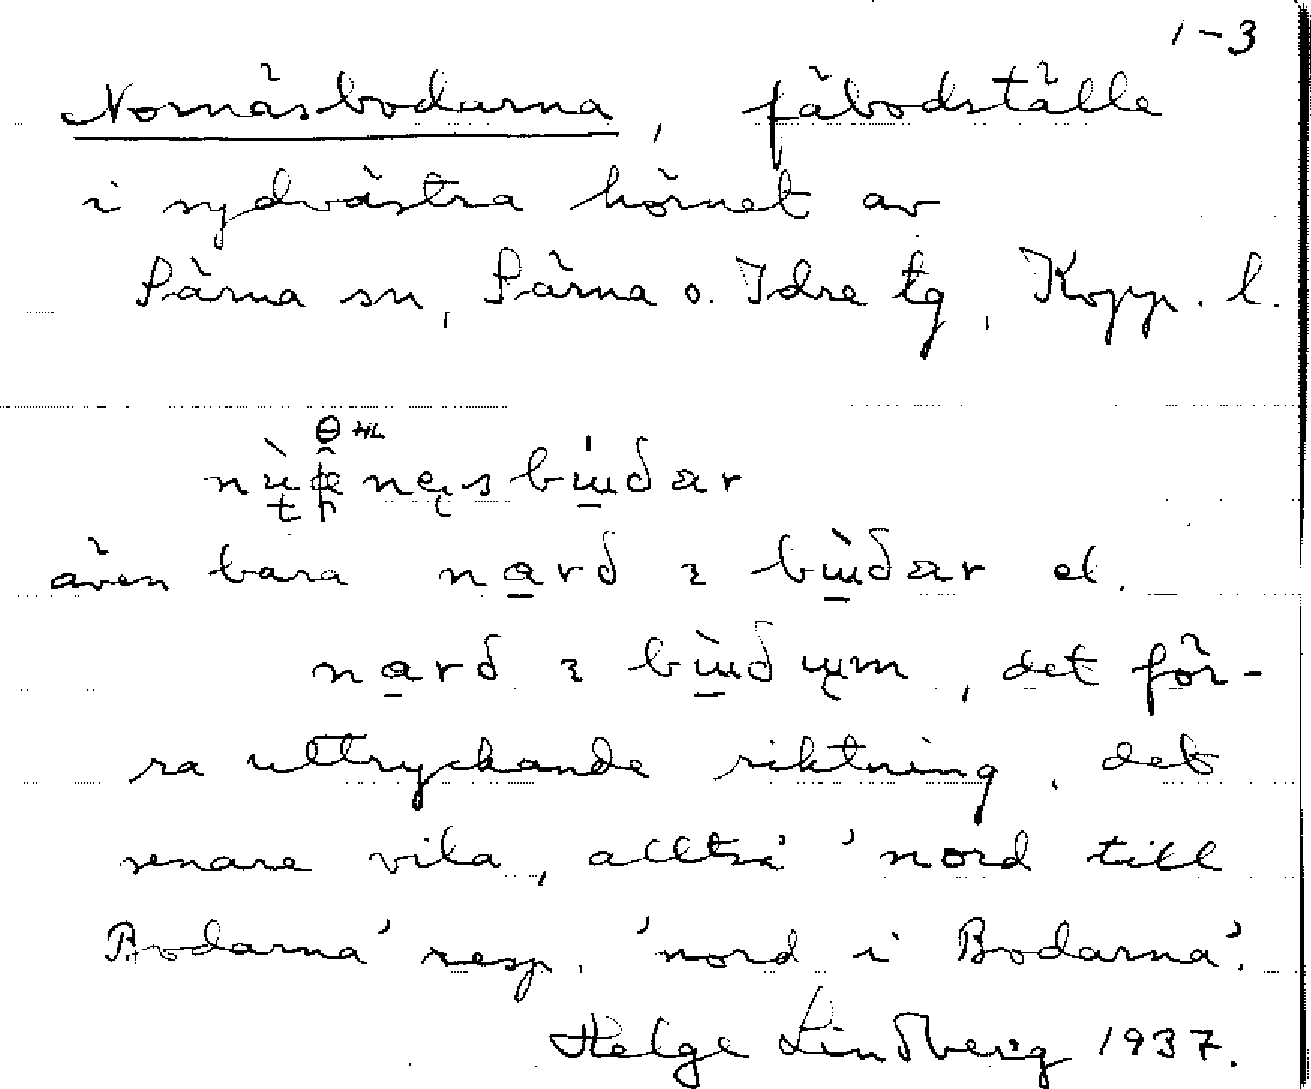 1-3
Nornäsbodarna, fäbodställe
i sydvästra hörnet av
Särna sn, Särna o. Idre tg, Kopp. l.
även bara nard ı bùɯðar el.
nard ı bùɯðum, det för-
ra uttryckande riktning, det
senare vila, alltså 'nord till
Bodarna' resp. 'nord i Bodarna'.
Helge Lindberg 1937.